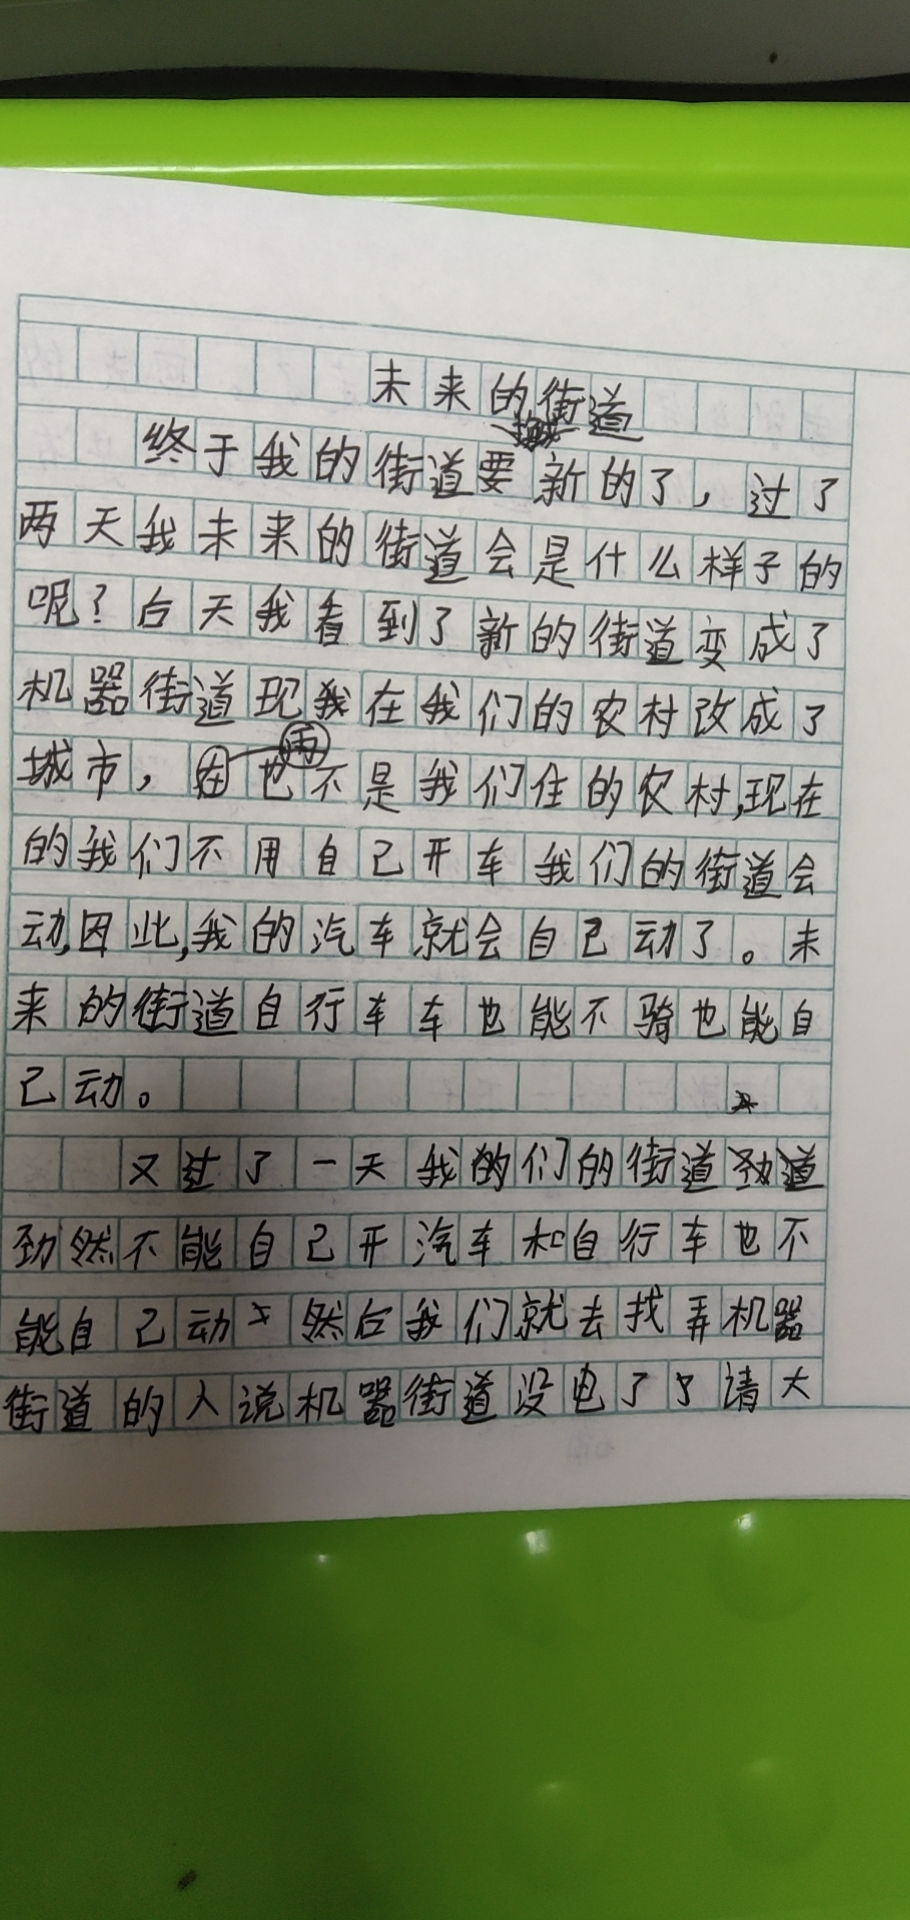 未来的街道
终于我的街道要新的了，过了
两天我未来的街道会是什么样子的
呢？后天我看到了新的街道变成了
机器街道现我在我们的农村改成了
城市，在再也不是我们住的农村,现在
的我们不用自己开车我们的街道会
动,因此,我的汽车就会自己动了。未
来的街道自行车车也能不骑也能自
己动。
又过了一天我的们的街道
然不能自己开汽车和自行车也不
能自己动 然后我们就去找弄机器
街道的人说机器街道没电了 请大